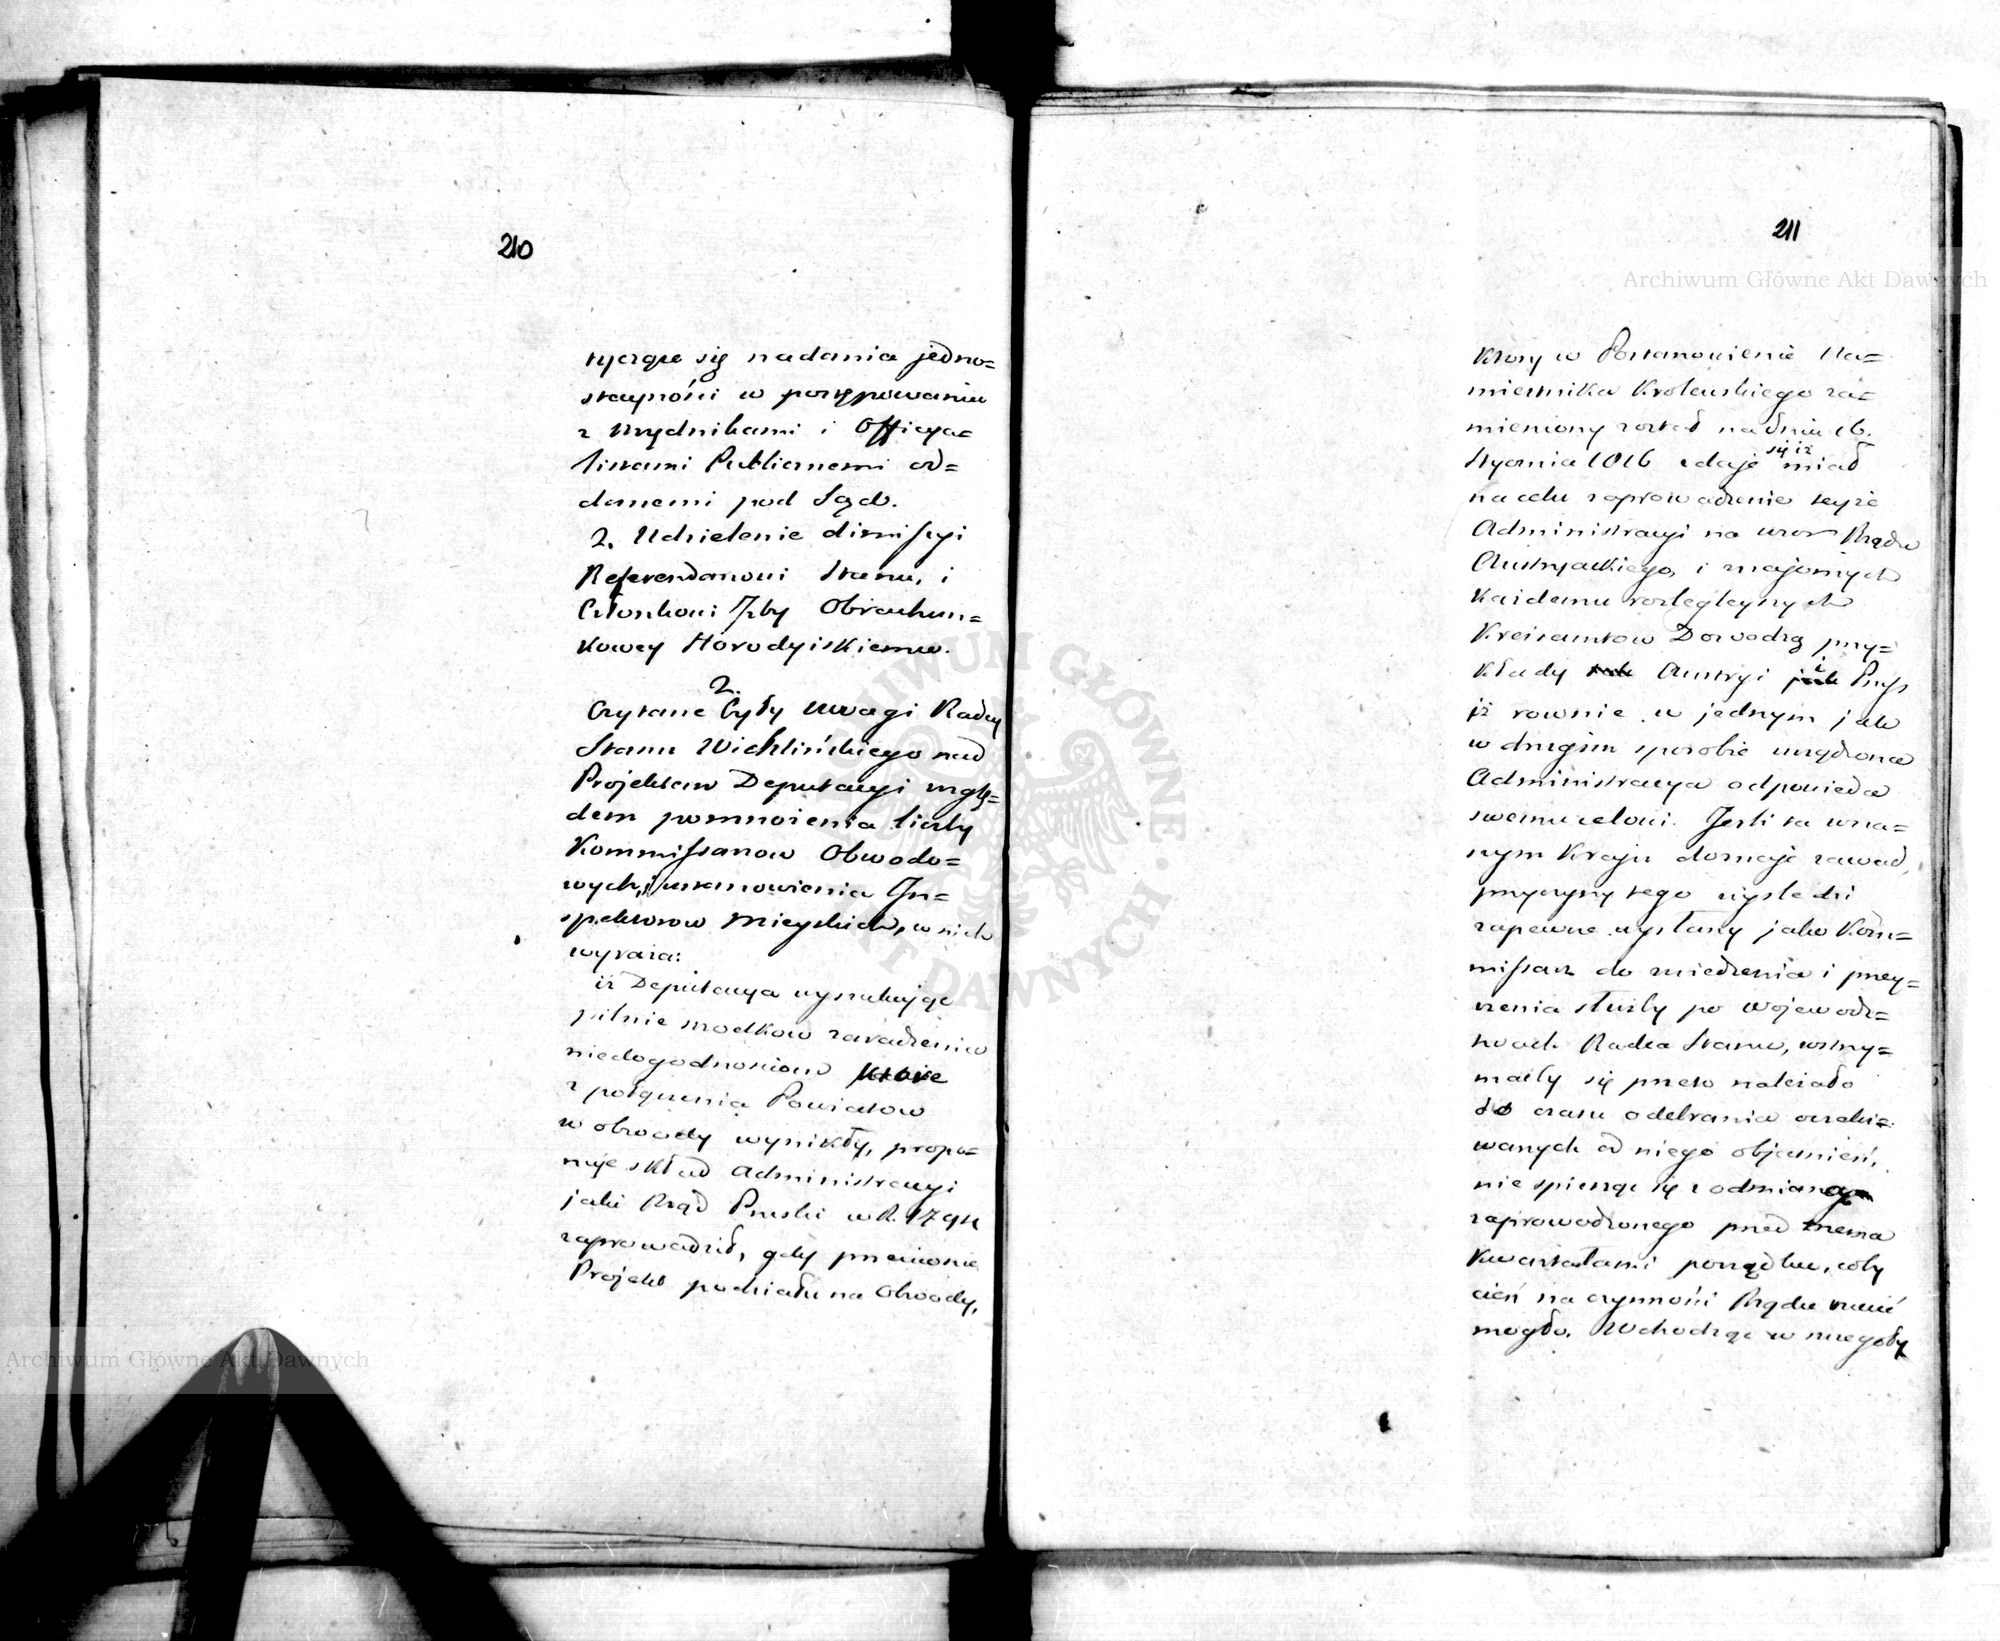 210
tyczące się nadania jedno=
staynośći w postępowaniu
z urzędnikami i Officya=
listami Publicznemi od=
danemi pod Sąd.
2. Udzielenie dimissyi
Referendarzowi Stanu, i
Członkowi Izby Obrachun=
kowey Horodyiskiemu.
2.
Czytane były uwagi Radcy
Stanu Wichlińskiego nad
Projektem Deputacyi wzglę=
dem pomnożenia liczby
Kommissarzow Obwodo=
wych, i ustanowienia In=
spektorow Mieyskich, w nich
wyraża:
iż Deputacya wyszukując
pilnie srodkow zaradzenia
niedogodnosciom które
z połączenia Powiatow
w obwody wynikły, propo=
nuje skład Administracyi
jaki Rząd Pruski w R. 1794
zaprowadził, gdy przeciwnie
Projekt podziału na Obwody,
211
Archiwum Główne Akt Dawnych
ktory w Postanowienie Na=
miestnika Krolewskiego za=
mieniony został na dniu 16.
Stycznia 1816 zdaje się iż miał
na celu zaprowadzenie teyże
Administracyi na wzor Rządu
Austryackiego, i znajomych
każdemu rozległeyszych
Kreisamtow Dowodzą przy=
kłady Austryi i Pruss
iż rownie w jednym jak
w drugim sposobie urządzona
Administracya odpowieda
swemu celowi. Jeśli ta w na=
szym Kraju doznaje zawad,
przyczyny tego wysledzi
zapewne wysłany jako Kom=
missarz do zwiedzenia i przey=
rzenia służby po Wojewodz=
twach Radca Stanu, wstrzy=
maćby się przeto należało
do czasu odebrania oczeki=
wanych od niego objasnień,
nie spiesząc się z odmianą
zaprowadzonego przed trzema
kwartałami porządku, coby
cień na czynnośći Rządu rzucić
mogło. Wchodząc w szczegóły
Archiwum Główne Akt Dawnych
ARCHIWUM GŁÓWNE AKT DAWNYCH